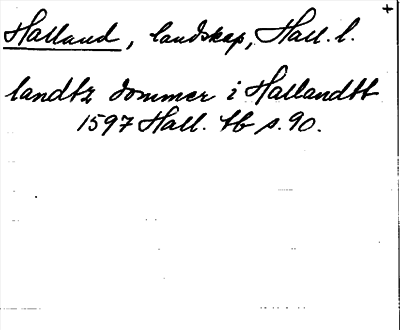 Halland, landskap, Hall. l.
landtz dommer i Hallandtt
1597 Hall. tb s. 90.